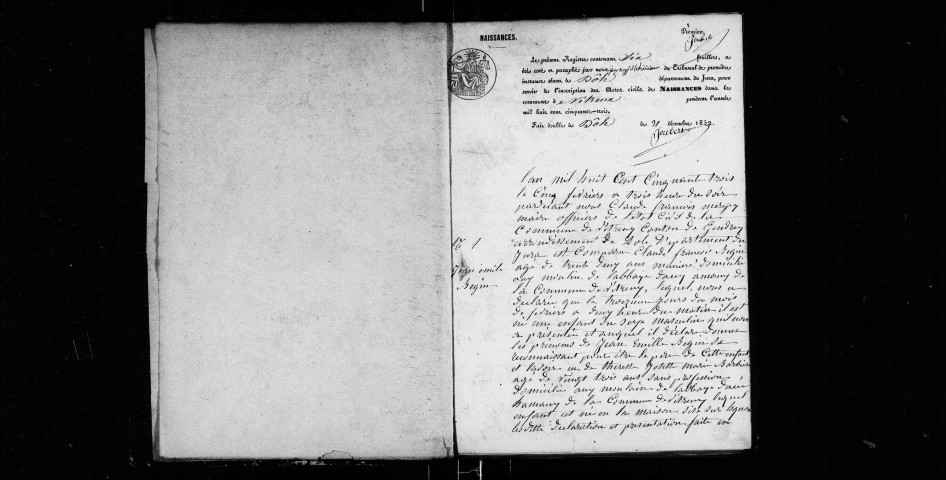 Première
Joubert
NAISSANCES.
Le présent Registre contenant Six feuilles, a
été coté et paraphé par nous du Tribunal de première
instance séant de Dole département du Jura, pour
servir de l'inscription des Actes civils de NAISSANCES dans la
commune de Vitreux pendant l'année
mil huit cent cinquante-trois.
Fait double à Dole le 31 décembre 1852.
Joubert
l'an mil huit Cent Cinquante trois
le Cinq fevriers a trois heure du soir
pardevant nous Claude francois
maire officiers de letat Civil de la
Commune de vitreux Canton de Gendrey
arrondissement de Dole Departement du
Jura est Comparu Claude francois Begin
age de trente deux ans domicilie
aux moulin de labbaye dacey
la Commune de vitreux, lequel nous a
declarée que le troizieme jours du mois
de fevriers a deux heure du matin il est
né un enfant du sexe masculin quil nous
a présentée et auquel il déclare donner
les prénoms de Jean Emille Begin se
reconnaissant pour être le père de Cette enfant
et lavoir eu de therese Josette marie
agé de vingt trois ans sans profession
domicilié aux moulain de labbaye dacé
hamaux de la Commune de vitreux lequel
enfant est né en la maison
lesditte declaration et presentation faite en
No 1
Jean emile
Begin